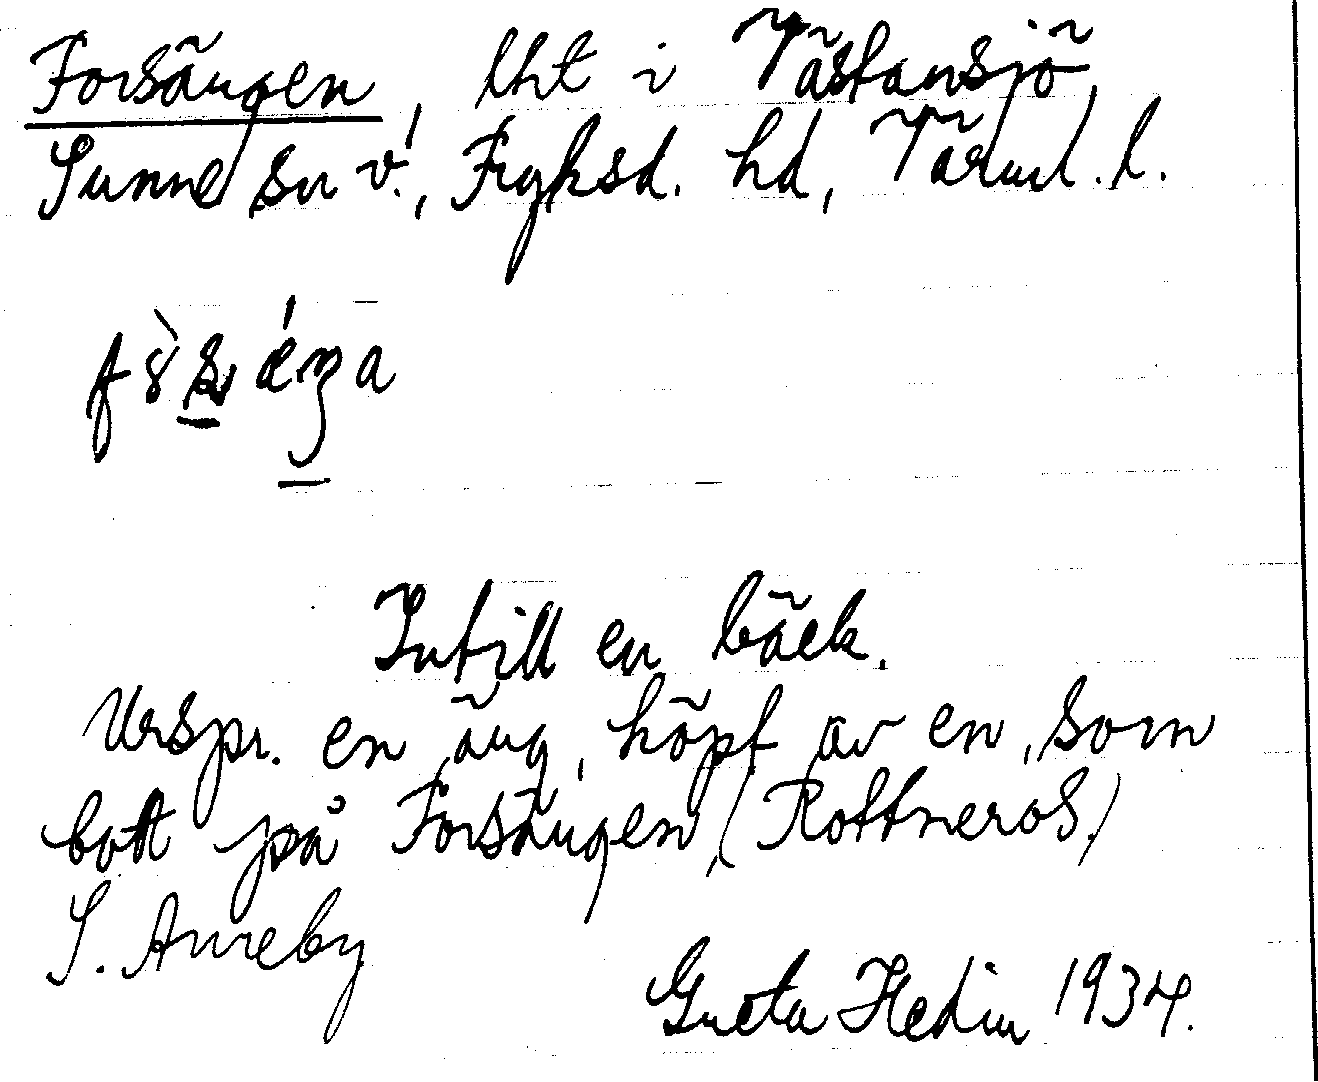 Forsängen, lht i Västansjö,
Sunne sn v., Fryksd. hd, Värml. l.
Intill en bäck.
Urspr. en äng, köpt av en, som
bott på Forsängen, (Rottneros.)
S. Amneby
Greta Hedin 1934.